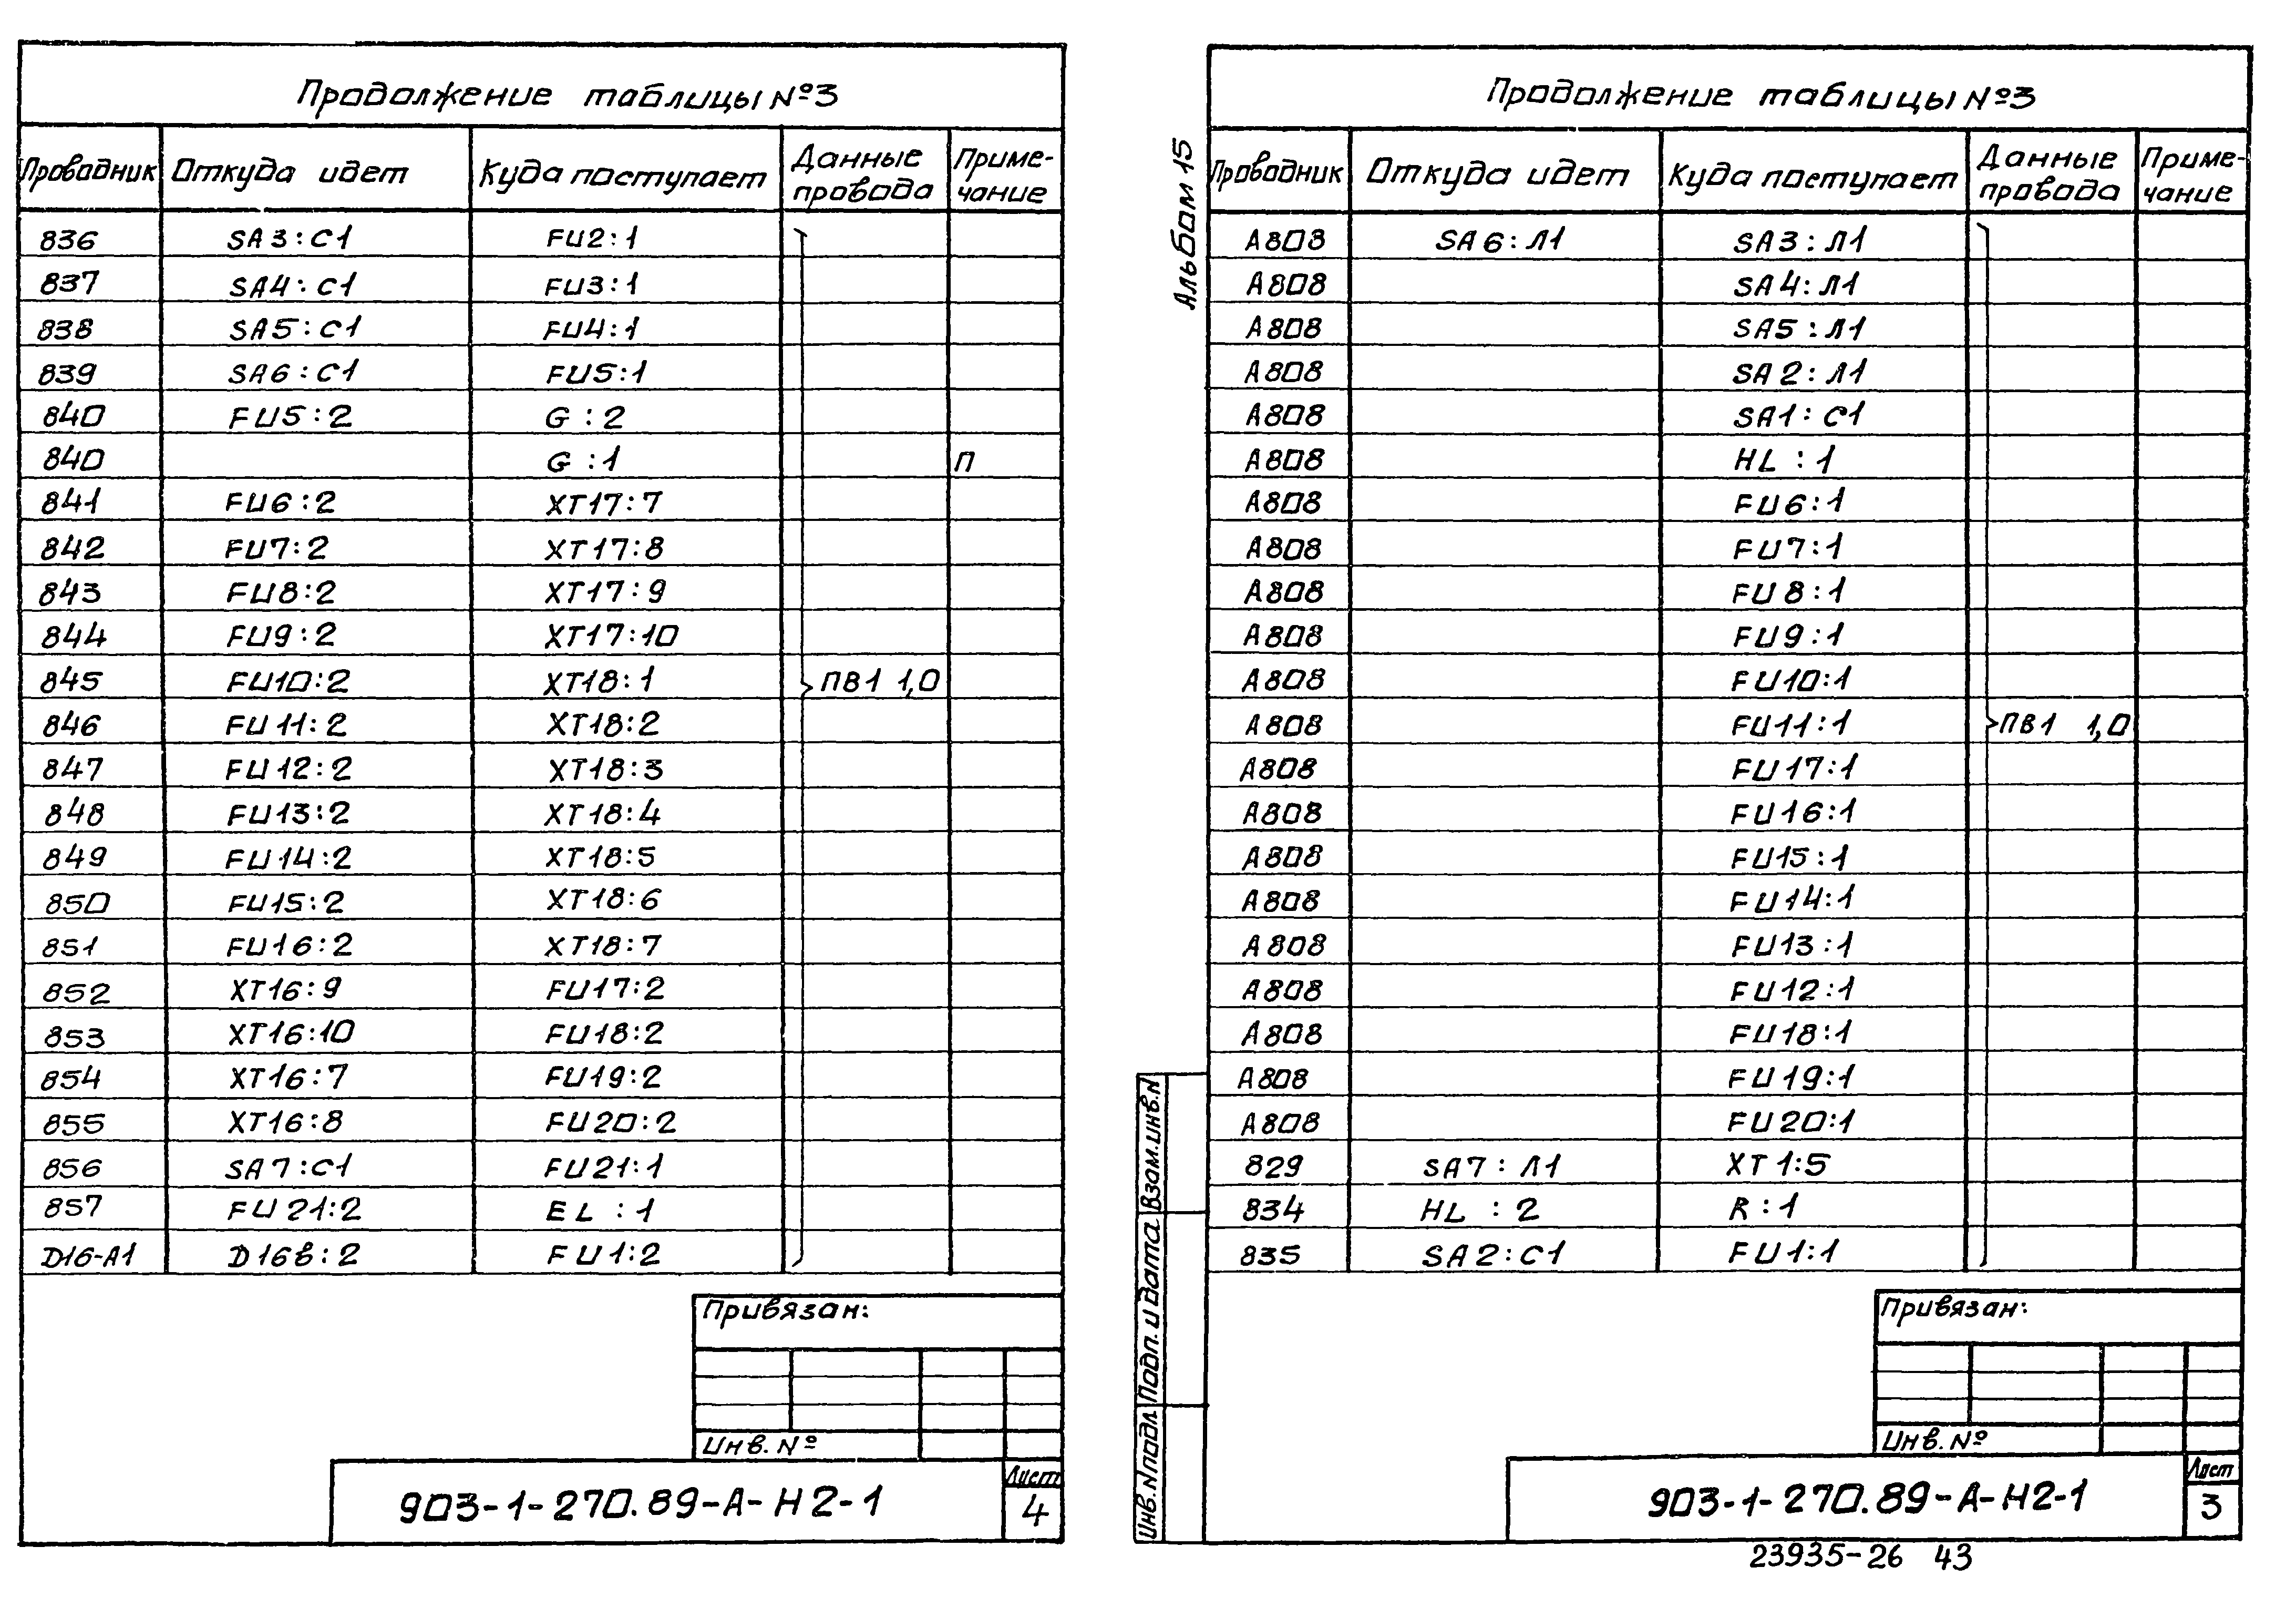 Продолжение таблицы №3
Проводник Откуда идет Куда поступает Данные провода Примечание
836 SA3:С1 FU2:1
837 SA4:С1 FU3:1
838 SA5:С1 FU4:1
839 SA6:С1 FU5:1
840 FU5:2 G:2
840 G:1 П
841 FU6:2 XT17:7
842 FU7:2 XT17:8
843 FU8:2 XT17:9
844 FU9:2 XT17:10
845 FU10:2 XT18:1 ПВ1 1,0
846 FU11:2 XT18:2
847 FU12:2 XT18:3
848 FU13:2 XT18:4
849 FU14:2 XT18:5
850 FU15:2 XT18:6
851 FU16:2 XT18:7
852 XT16:9 FU17:2
853 XT16:10 FU18:2
854 XT16:7 FU19:2
855 XT16:8 FU20:2
856 SA7:С1 FU21:1
857 FU21:2 EL:1
D16-A1 D16в:2 FU1:2
Привязан:
Инв. №
903-1-270.89-А-Н2-1
Лист
4
Альбом 15
Продолжение таблицы №3
Проводник Откуда идет Куда поступает Данные провода Примечание
А808 SA6:Л1 SA3:Л1
А808 SA4:Л1
А808 SA5:Л1
А808 SA2:Л1
А808 SA1:С1
А808 HL:1
А808 FU6:1
А808 FU7:1
А808 FU8:1
А808 FU9:1
А808 FU10:1
А808 FU11:1 ПВ1 1,0
А808 FU17:1
А808 FU16:1
А808 FU15:1
А808 FU14:1
А808 FU13:1
А808 FU12:1
А808 FU18:1
А808 FU19:1
А808 FU20:1
829 SA7:Л1 XT1:5
834 HL:2 R:1
835 SA2:С1 FU1:1
Взам.инв.N
Подп. и дата
Инв.Nподл
Привязан:
Инв. №
903-1-270.89-А-Н2-1
Лист
3
23935-26 43